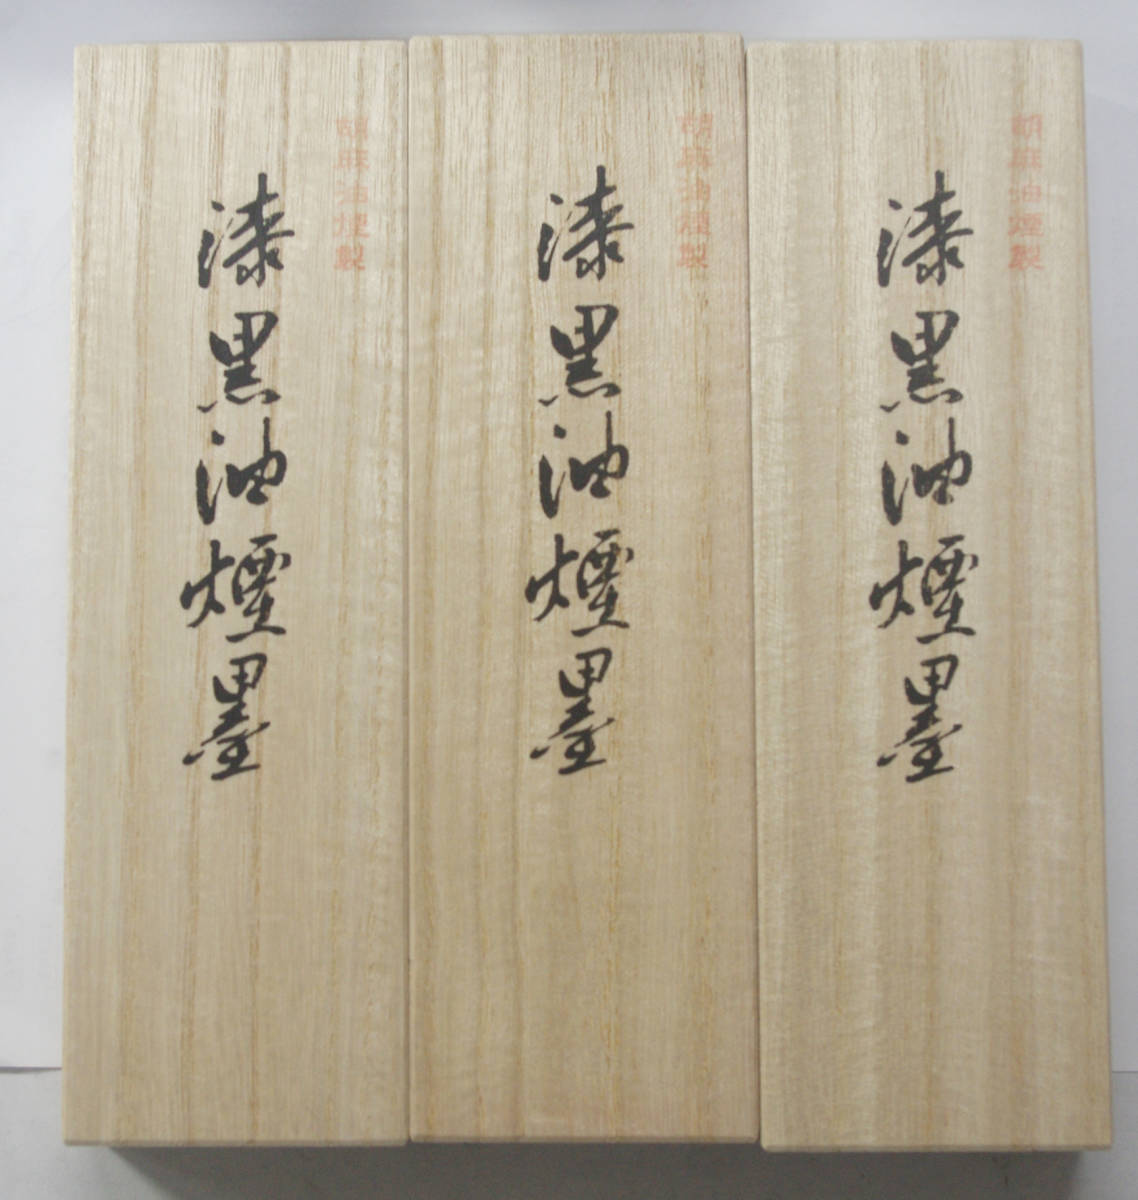 胡麻油煙製
漆黒油煙墨
胡麻油煙製
漆黒油煙墨
胡麻油煙製
漆黒油煙墨